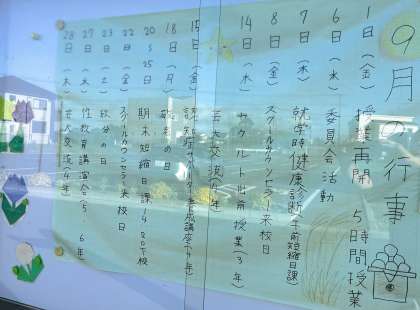 9月の行事
1日（金）授業再開 5時間授業
6日（水）委員会活動
7日（木）就学時健康診断（午前短縮日課）
8日（金）スクールカウンセラー来校日
14日（木）ヤクルト出前授業（3年）
芸大交流（5年）
15日（金）認知症サポーター養成講座（4年）
18日（月）敬老の日
20〜25日 期末短縮日課〜14:20下校
22日（金）スクールカウンセラー来校日
23日（土）秋分の日
27日（水）性教育講演会（5、6年）
28日（木）芸大交流（4年）